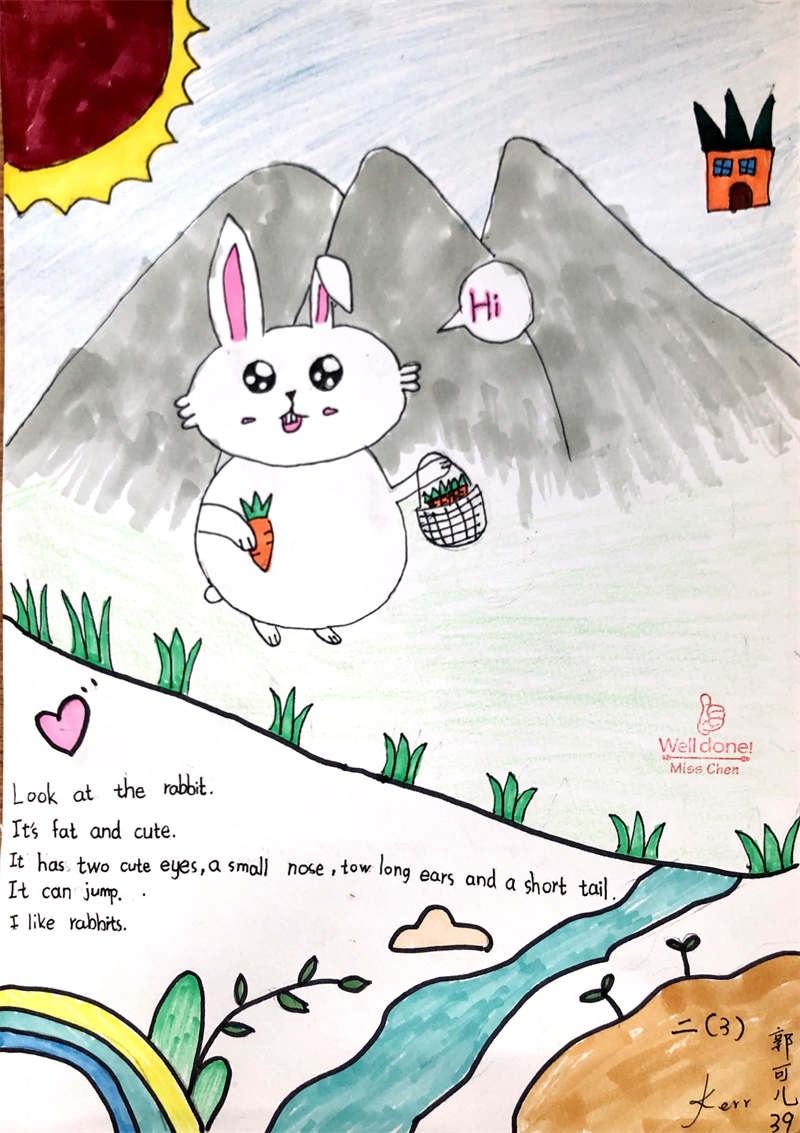 Hi
Well done!
Miss Chen
Look at the rabbit.
It's fat and cute.
It has two cute eyes, a small nose, tow long ears and a short tail.
It can jump.
I like rabbits.
二(3)
郭可儿
Kerr
39